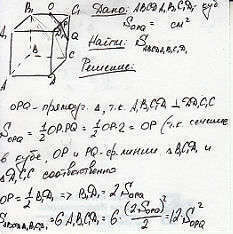 B₁ O C₁
A₁ P
D₁ Q
B C
A D
Дано: ABCDA₁B₁C₁D₁ куб
S_OPQ = см²
Найти: S_ABCDA₁B₁C₁D₁
Решение:
OPQ - прямоуг. Δ, т.к. A₁B₁C₁D₁ ⊥ DD₁C₁C
S_OPQ = 1/2 OP·PQ = 1/2 OP·2 = OP (т.к. сечение
в кубе, OP и PQ ср. линии ΔB₁C₁D₁ и
ΔD₁C₁C соответственно
OP = 1/2 B₁D₁ => B₁D₁ = 2S_OPQ
S_ABCDA₁B₁C₁D₁ = 6 A₁B₁C₁D₁ = 6·(2S_OPQ)²/2 = 12S²_OPQ